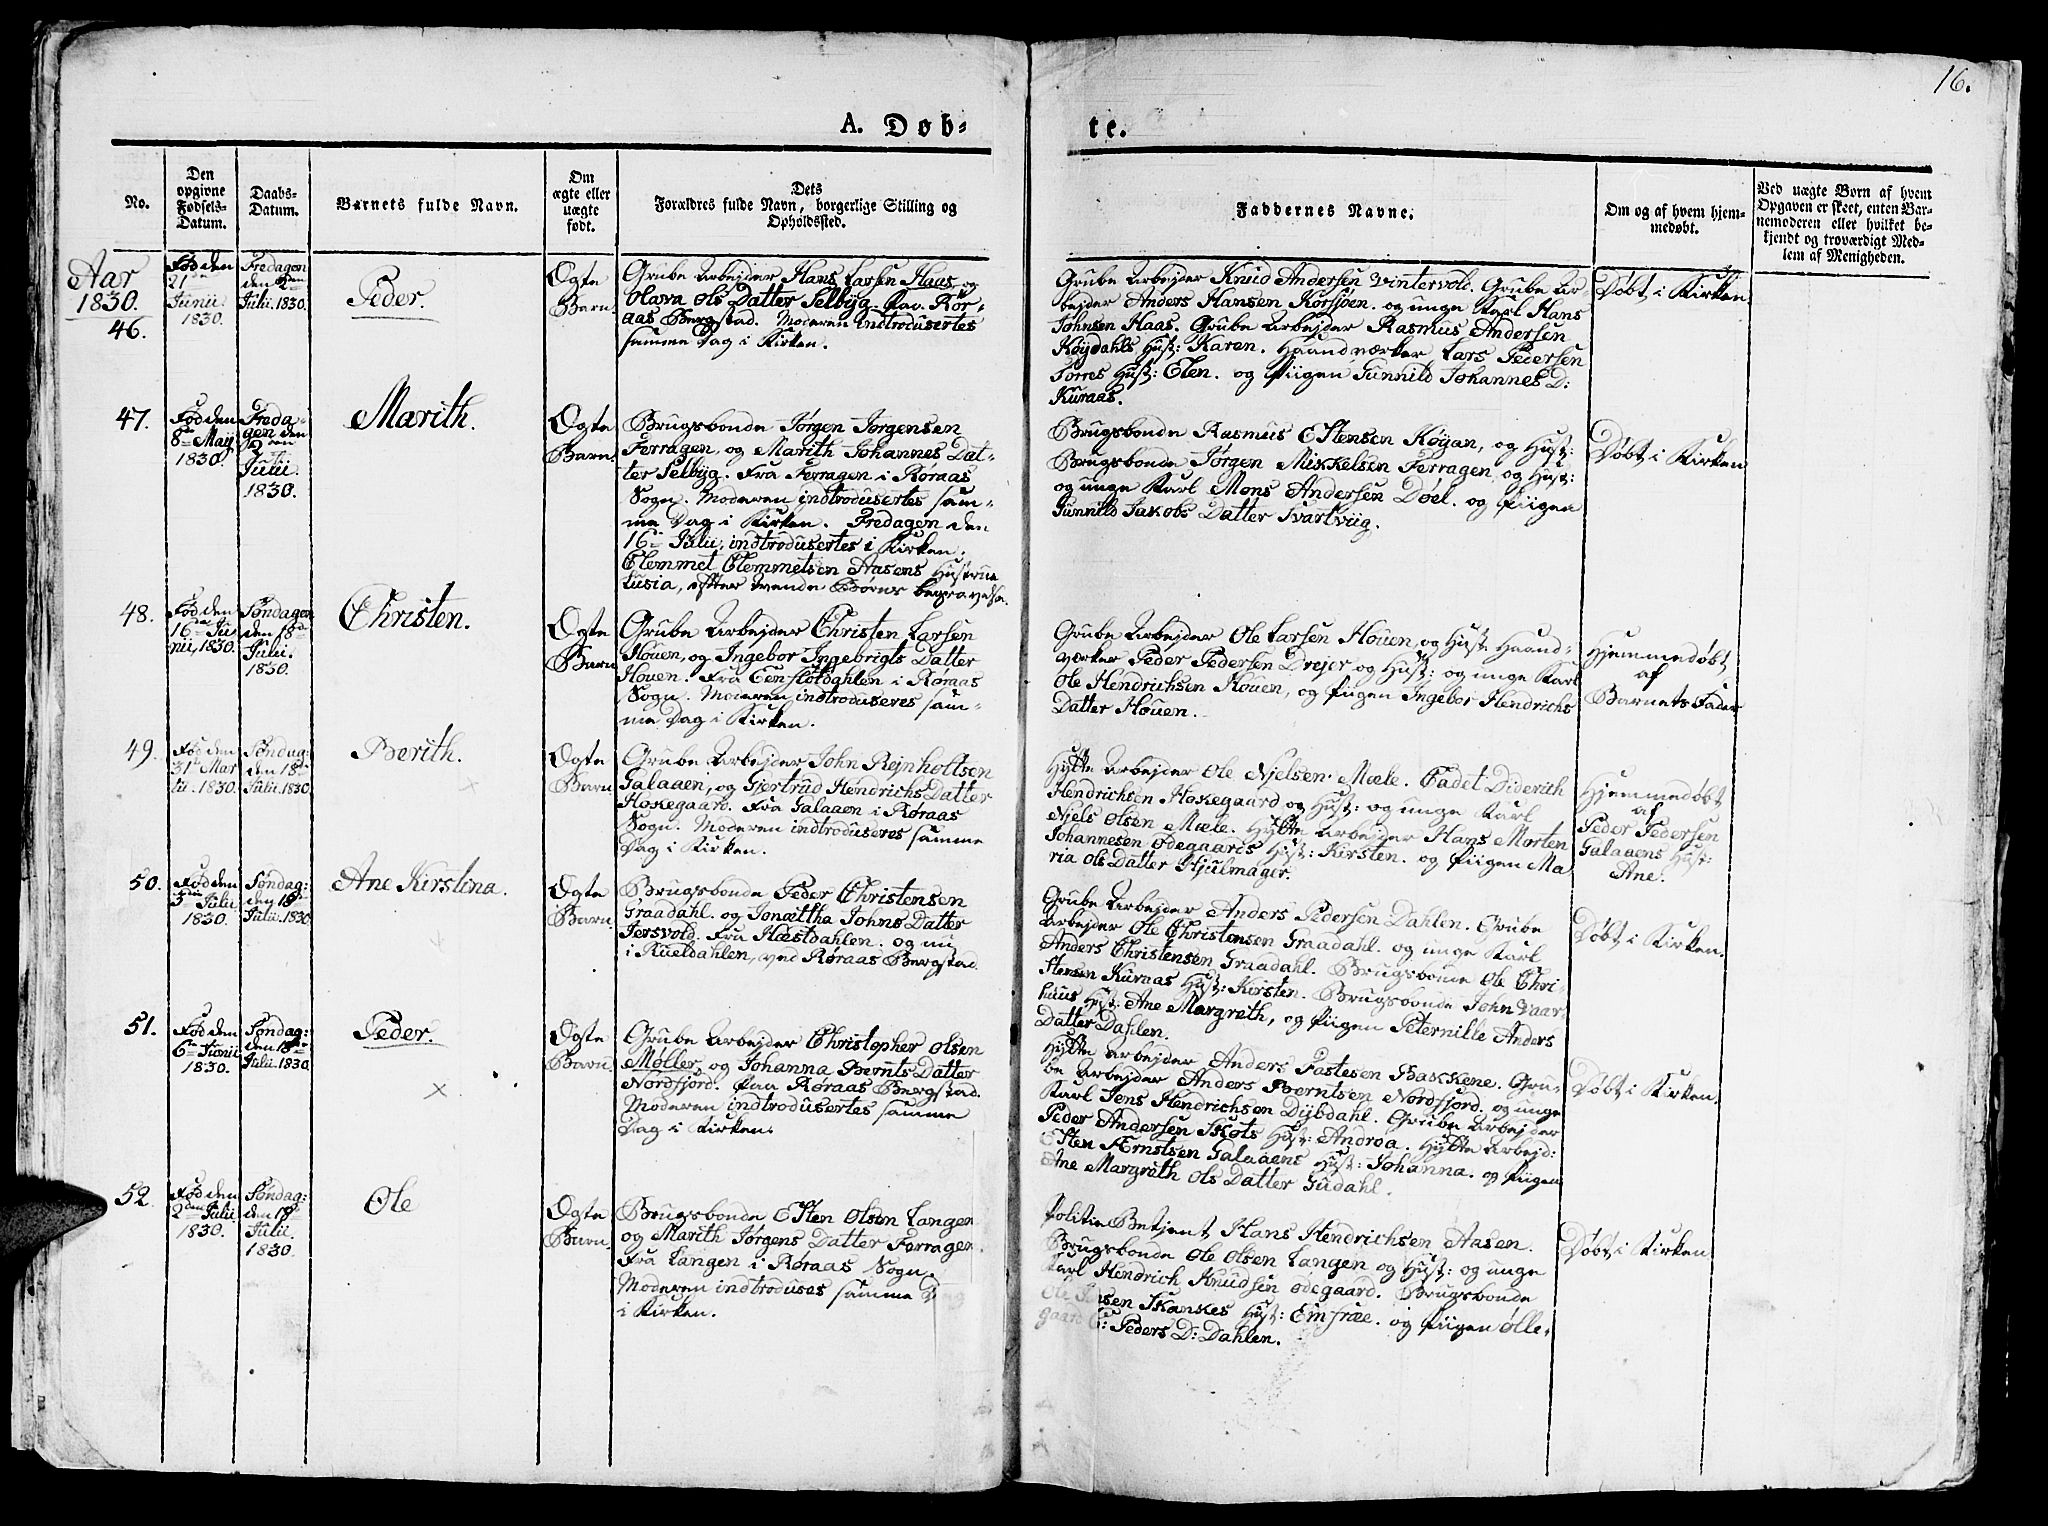 16.
A. Døb-
te.
No.
Den opgivne Fødsels-Datum.
Daabs-Datum.
Barnets fulde Navn.
Om ægte eller uægte født.
Dets
Forældres fulde Navn, borgerlige Stilling og
Opholdssted.
Faddernes Navne.
Om og af hvem hjem-
medøbt.
Ved uægte Børn af hvem
Opgaven er skeet, enten Bar-
nemoderen eller hvilket be-
kjendt og troværdigt Med-
lem af Menigheden.
Aar
1830.
46.
Fød den
21
Junii
1830.
Fredagen
den 2den
Julii. 1830.
Peder.
Ægte
Barn.
Grube Arbejder Hans Larsen Haas og
Olava Ols Datter Selbÿg. Paa Rør-
aas Bergstad. Moderen indtrodusertes
samme Dag i Kirken.
Grube Arbejder Knud Andersen Vintervold. Grube Ar-
bejder Anders Hansen Korsjøen. og unge Karl Hans
Johnsen Haas. Grube Arbejder Rasmus Andersen
Køÿdahls Hust: Karen. Haandværker Lars Pedersen
Torres Hust: Elen. og Piigen Gunnild Johannes D:
Kuraas.
Døbt i Kirken
47.
Fød den
8de Maÿ
1830.
Freda-
gen den
Julii
1830.
Marith.
Ægte
Barn.
Brugsbonde Jørgen Jørgensen
Ferragen, og Marith Johannes Dat-
ter Selbÿg. Fra Ferragen i Røraas
Sogn. Moderen indtrodusertes sam-
me Dag i Kirken. Fredagen den
16de Julii, indtrodusertes i Kirken,
Clemmet Clemmetsen Aasens Hustrue
Lusia, efter tvende Børns begravelse.
Brugsbonde Rasmus Estensen Køÿan, og Hust:
Brugsbonde Jørgen Mikkelsen Ferragen og Hust:
og unge Karl Mons Andersen Døel. og Piigen
Gunnild Jakobs Datter Svartviig.
Døbt i Kirken
48.
Fød den
16de Ju
nii, 1830.
Søndagen
den 18de
Julii.
1830.
Christen.
Ægte
Barn
Grube Arbejder Christen Larsen
Houen, og Ingebor Ingebrigts Datter
Houen. Fra Feenslotdahlen i Røraas
Sogn. Moderen indtroduseres sam-
me Dag i Kirken.
Grube Arbejder Ole Larsen Houen, og Hust: Haand-
værker Peder Pedersen Drejer og Hust: og unge Karl
Ole Hendrichsen Houen, og Piigen Ingebor Hendrichs
Datter Houen.
Hjemmedøbt
af
Barnets Fader
49.
Fød den
31te Mar
tii. 1830.
Søndag:
den 18de
Julii. 1830.
Berith.
Ægte
Barn
Grube Arbejder John Rejnholtsen
Galaaen, og Gjertrud Hendrichs Datter
Hoskegaard. Fra Galaaen i Røraas
Sogn. Moderen indtroduseres samme
Dag i Kirken.
Hÿtte Arbejder Ole Njelsen Mæle. Cadet Diderich
Hendrichsen Hoskegaard og Hust: og unge Karl
Njels Olsen Mæle. Hÿtte Arbejder Hans Morten
Johannesen Ødegaards Hust: Kirsten. og Piigen Ma
ria Ols Datter Hjulmager.
Hjemmedøbt
af
Peder Pedersen
Galaaens Hust:
Ane.
50.
Fød den
5te Julii
1830.
Søndag:
den 18de
Julii. 1830
Ane Kirstina.
Ægte
Barn.
Brugsbonde Peder Christensen
Graadahl. og Jonættha Johns Datter
Jersvold. Fra Hæstdahlen. og nu
i Kueldahlen, ved Røraas Bergstad.
Grube Arbejder Anders Pedersen Dahlen. Grube
Arbejder Ole Christensen Graadahl. og unge Karl
Anders Christensen Graadahl. Brugsbonde Ole Chri-
stensen Kuraas Hust: Kirsten. Brugsbonde John Vaar
huus Hust: Ane Margreth, og Piigen Peternille Anders
Datter Dahlen.
Døbt i Kirken.
51.
Fød den
6te Junii
1830.
Søndag:
den 18de
Julii. 1830
Peder.
Ægte
Barn.
Grube Arbejder Christopher Olsen
Møller, og Johanna Bernts Datter
Nordfjord. Paa Røraas Bergstad.
Moderen indtrodusertes samme
Dag i Kirken.
Hÿtte Arbejder Anders Fastesen Bakkene. Gru-
be Arbejder Anders Berntsen Nordfjord. og unge
Karl Jens Hendrichsen Dÿbdahl. Grube Arbejder
Peder Andersen Skots Hust: Androa. Hÿtte Arbejd:
Esten Ærnstsen Galaaens Hust: Johanna. og Piigen
Ane Margreth Ols Datter Gudahl.
Døbt i Kirken.
52.
Fød den
2den Julii
1830.
Søndag:
den 18de
Julii.
1830.
Ole
Ægte
Barn.
Brugsbonde Esten Olsen Langen
og Marith Jørgens Datter Ferragen.
Fra Langen i Røraas Sogn.
Moderen indtroduses samme Dag
i Kirken.
Politie Betjent Hans Hendrichsen Aasen.
Brugsbonde Ole Olsen Langen og Hust: og unge
Karl Hendrich Knudsen Ødegaard. Brugsbonde
Ole Jensen Skankes Hust: Emfræe. og Piigen Ølle-
gaard C: Peders D: Dahlen.
Døbt i Kirken